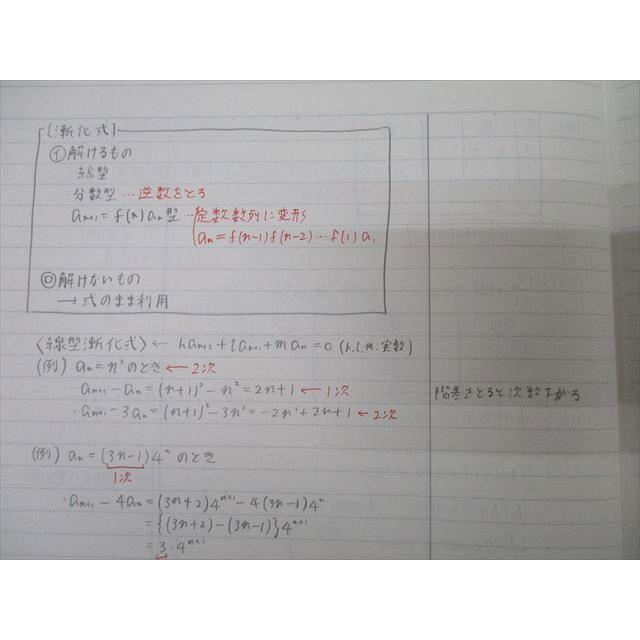 [漸化式]
㋑解けるもの
・線型
・分数型…逆数をとる
aₙ₊₁=f(n)aₙ型…定数数列に変形
aₙ=f(n-1)f(n-2)…f(1)a₁
㋺解けないもの
→式のまま利用
〈線型漸化式〉← kaₙ₊₂+laₙ₊₁+maₙ=0 (k,l,m:実数)
(例) aₙ=n²のとき ←2次
・aₙ₊₁-aₙ=(n+1)²-n²=2n+1 ←1次
・aₙ₊₁-3aₙ=(n+1)²-3n²=-2n²+2n+1 ←2次
階差をとると次数下がる
(例) aₙ=(3n-1)4ⁿ のとき
1次
・aₙ₊₁-4aₙ=(3n+2)4ⁿ⁺¹-4(3n-1)4ⁿ
={(3n+2)-(3n-1)}4ⁿ⁺¹
=3・4ⁿ⁺¹